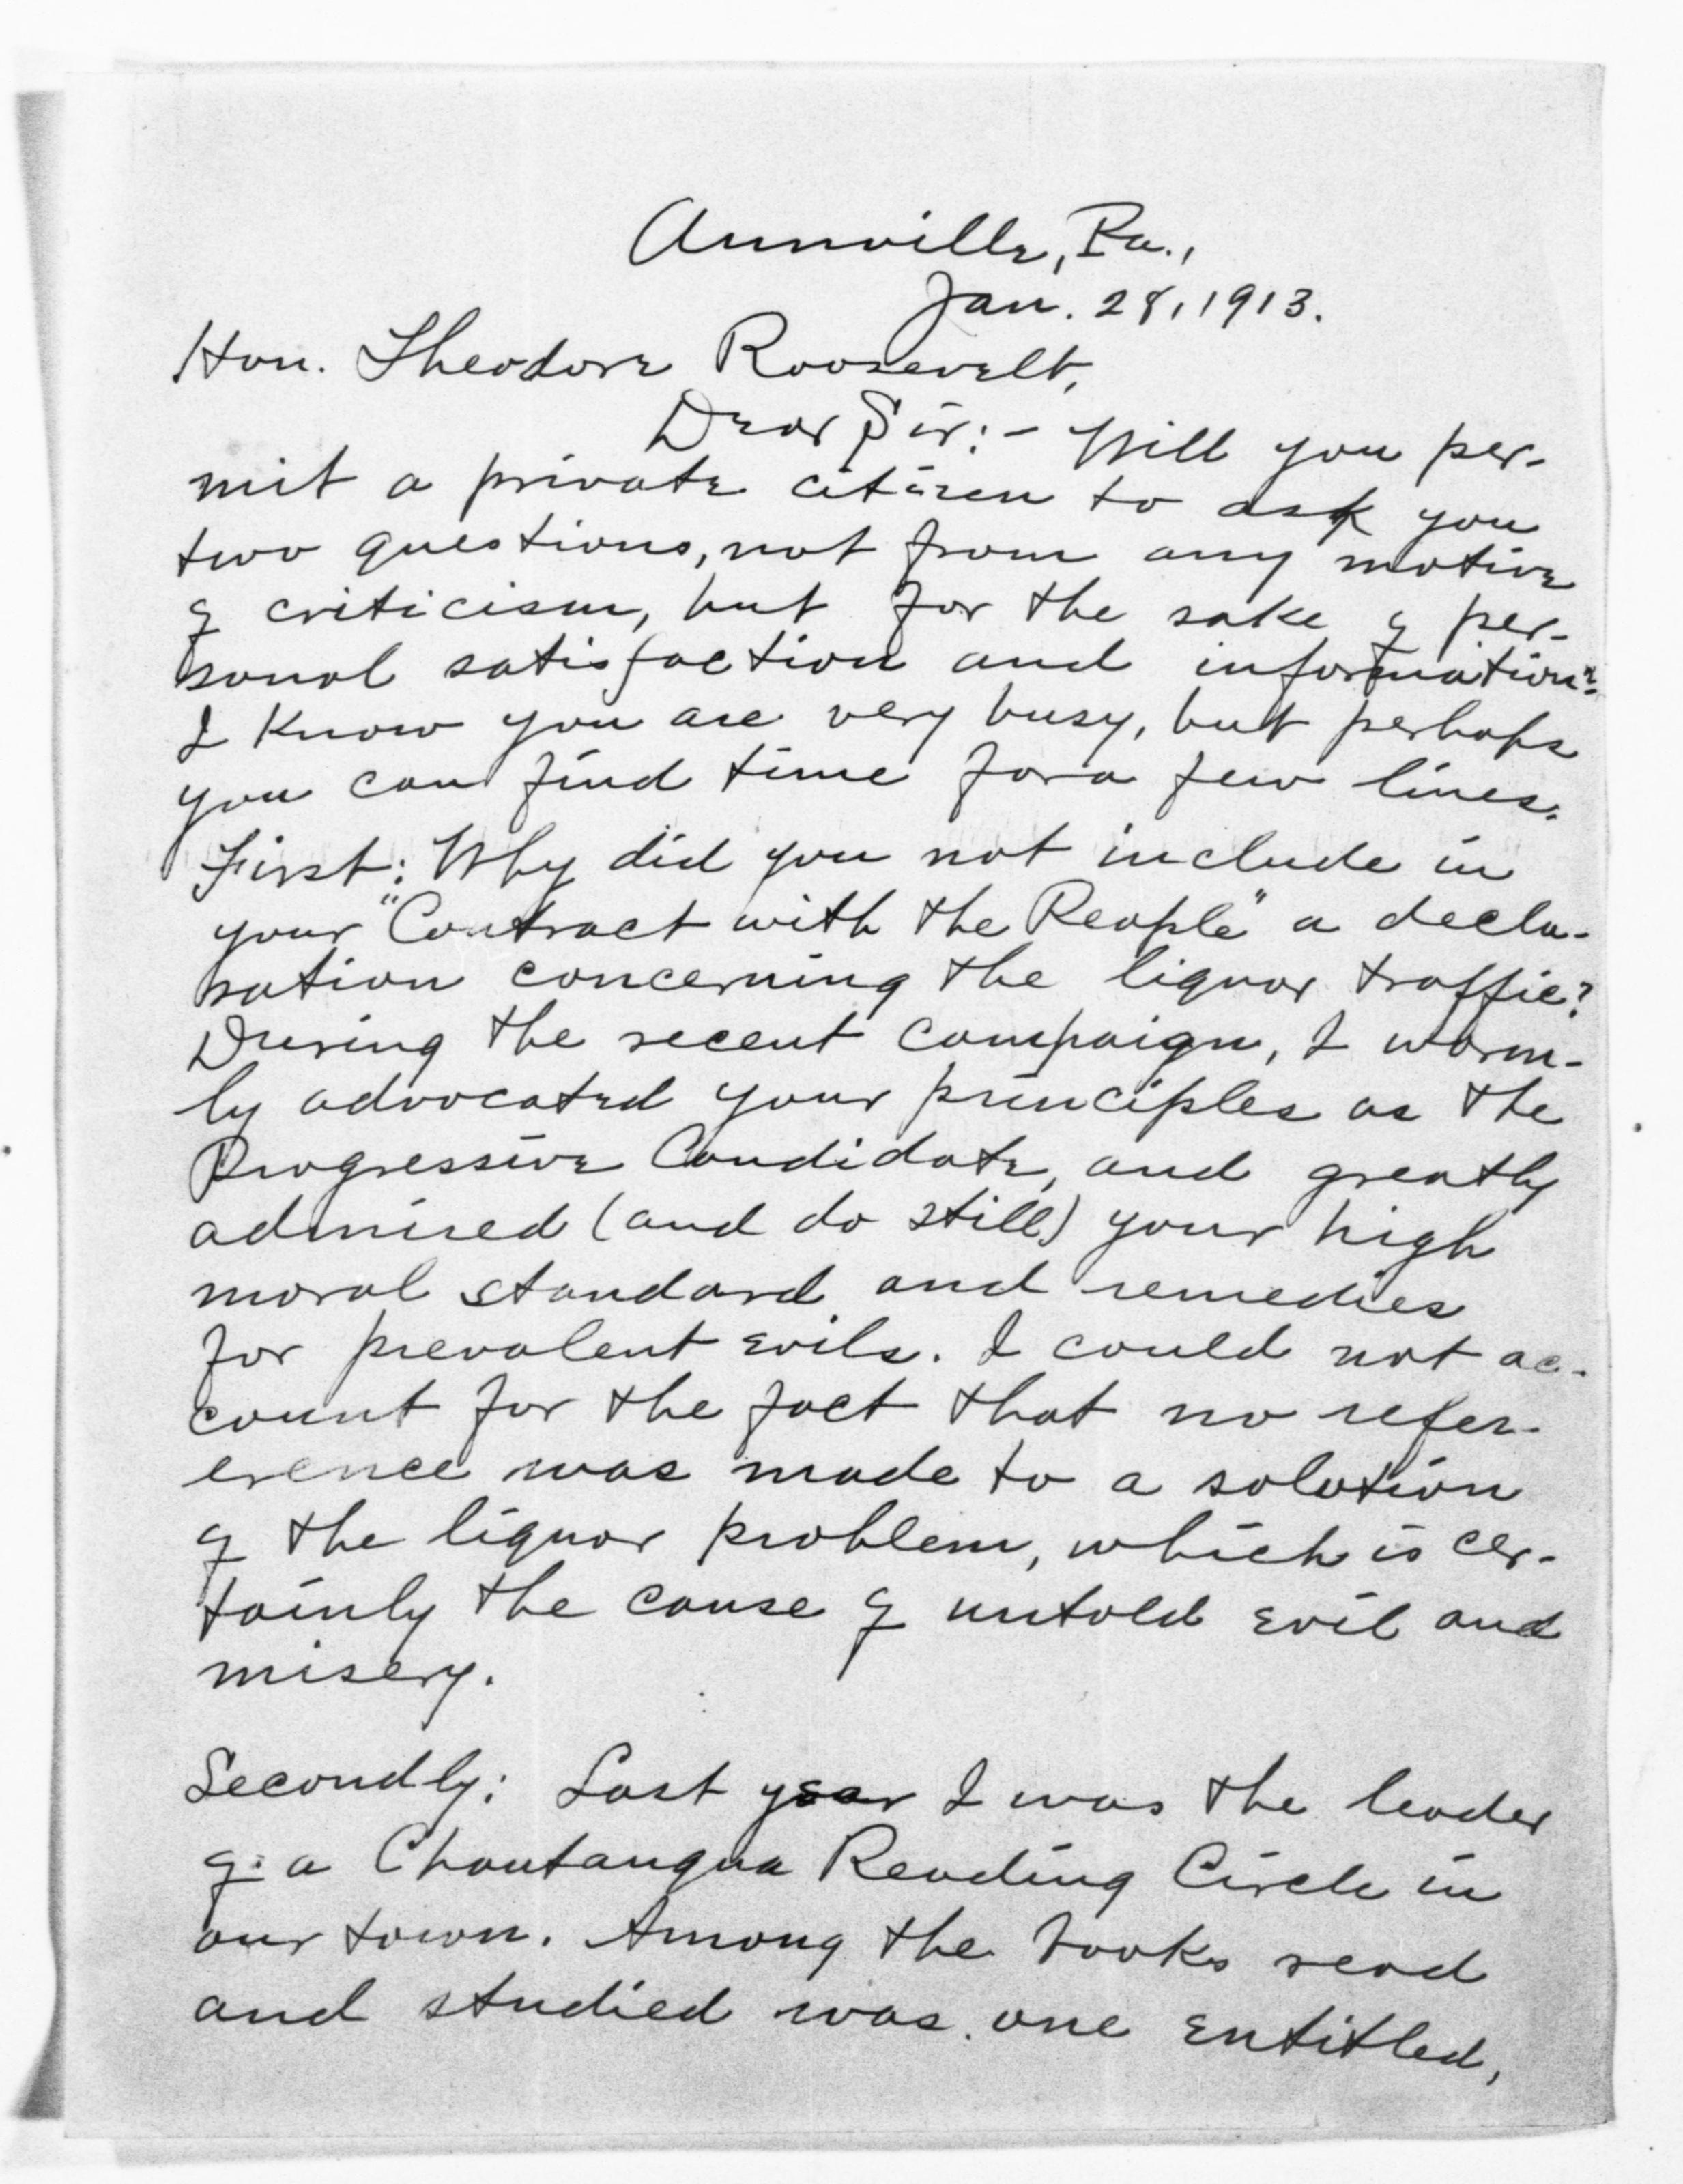 Annville, Pa.,
Jan. 28, 1913.
Hon. Theodore Roosevelt,
Dear Sir:- Will you per-
mit a private citizen to ask you
two questions, not from any motive
of criticism, but for the sake of per-
sonal satisfaction and information?
I know you are very busy, but perhaps
you can find time for a few lines.
First: Why did you not include in
your "Contract with the People" a decla-
ration concerning the liquor traffic?
During the recent campaign, I warm-
ly advocated your principles as the
Progressive Candidate, and greatly
admired (and do still) your high
moral standard and remedies
for prevalent evils. I could not ac-
count for the fact that no refer-
erence was made to a solution
of the liquor problem, which is cer-
tainly the cause of untold evil and
misery.
Secondly: Last year I was the leader
of a Chautauqua Reading Circle in
our town. Among the books read
and studied was one entitled,